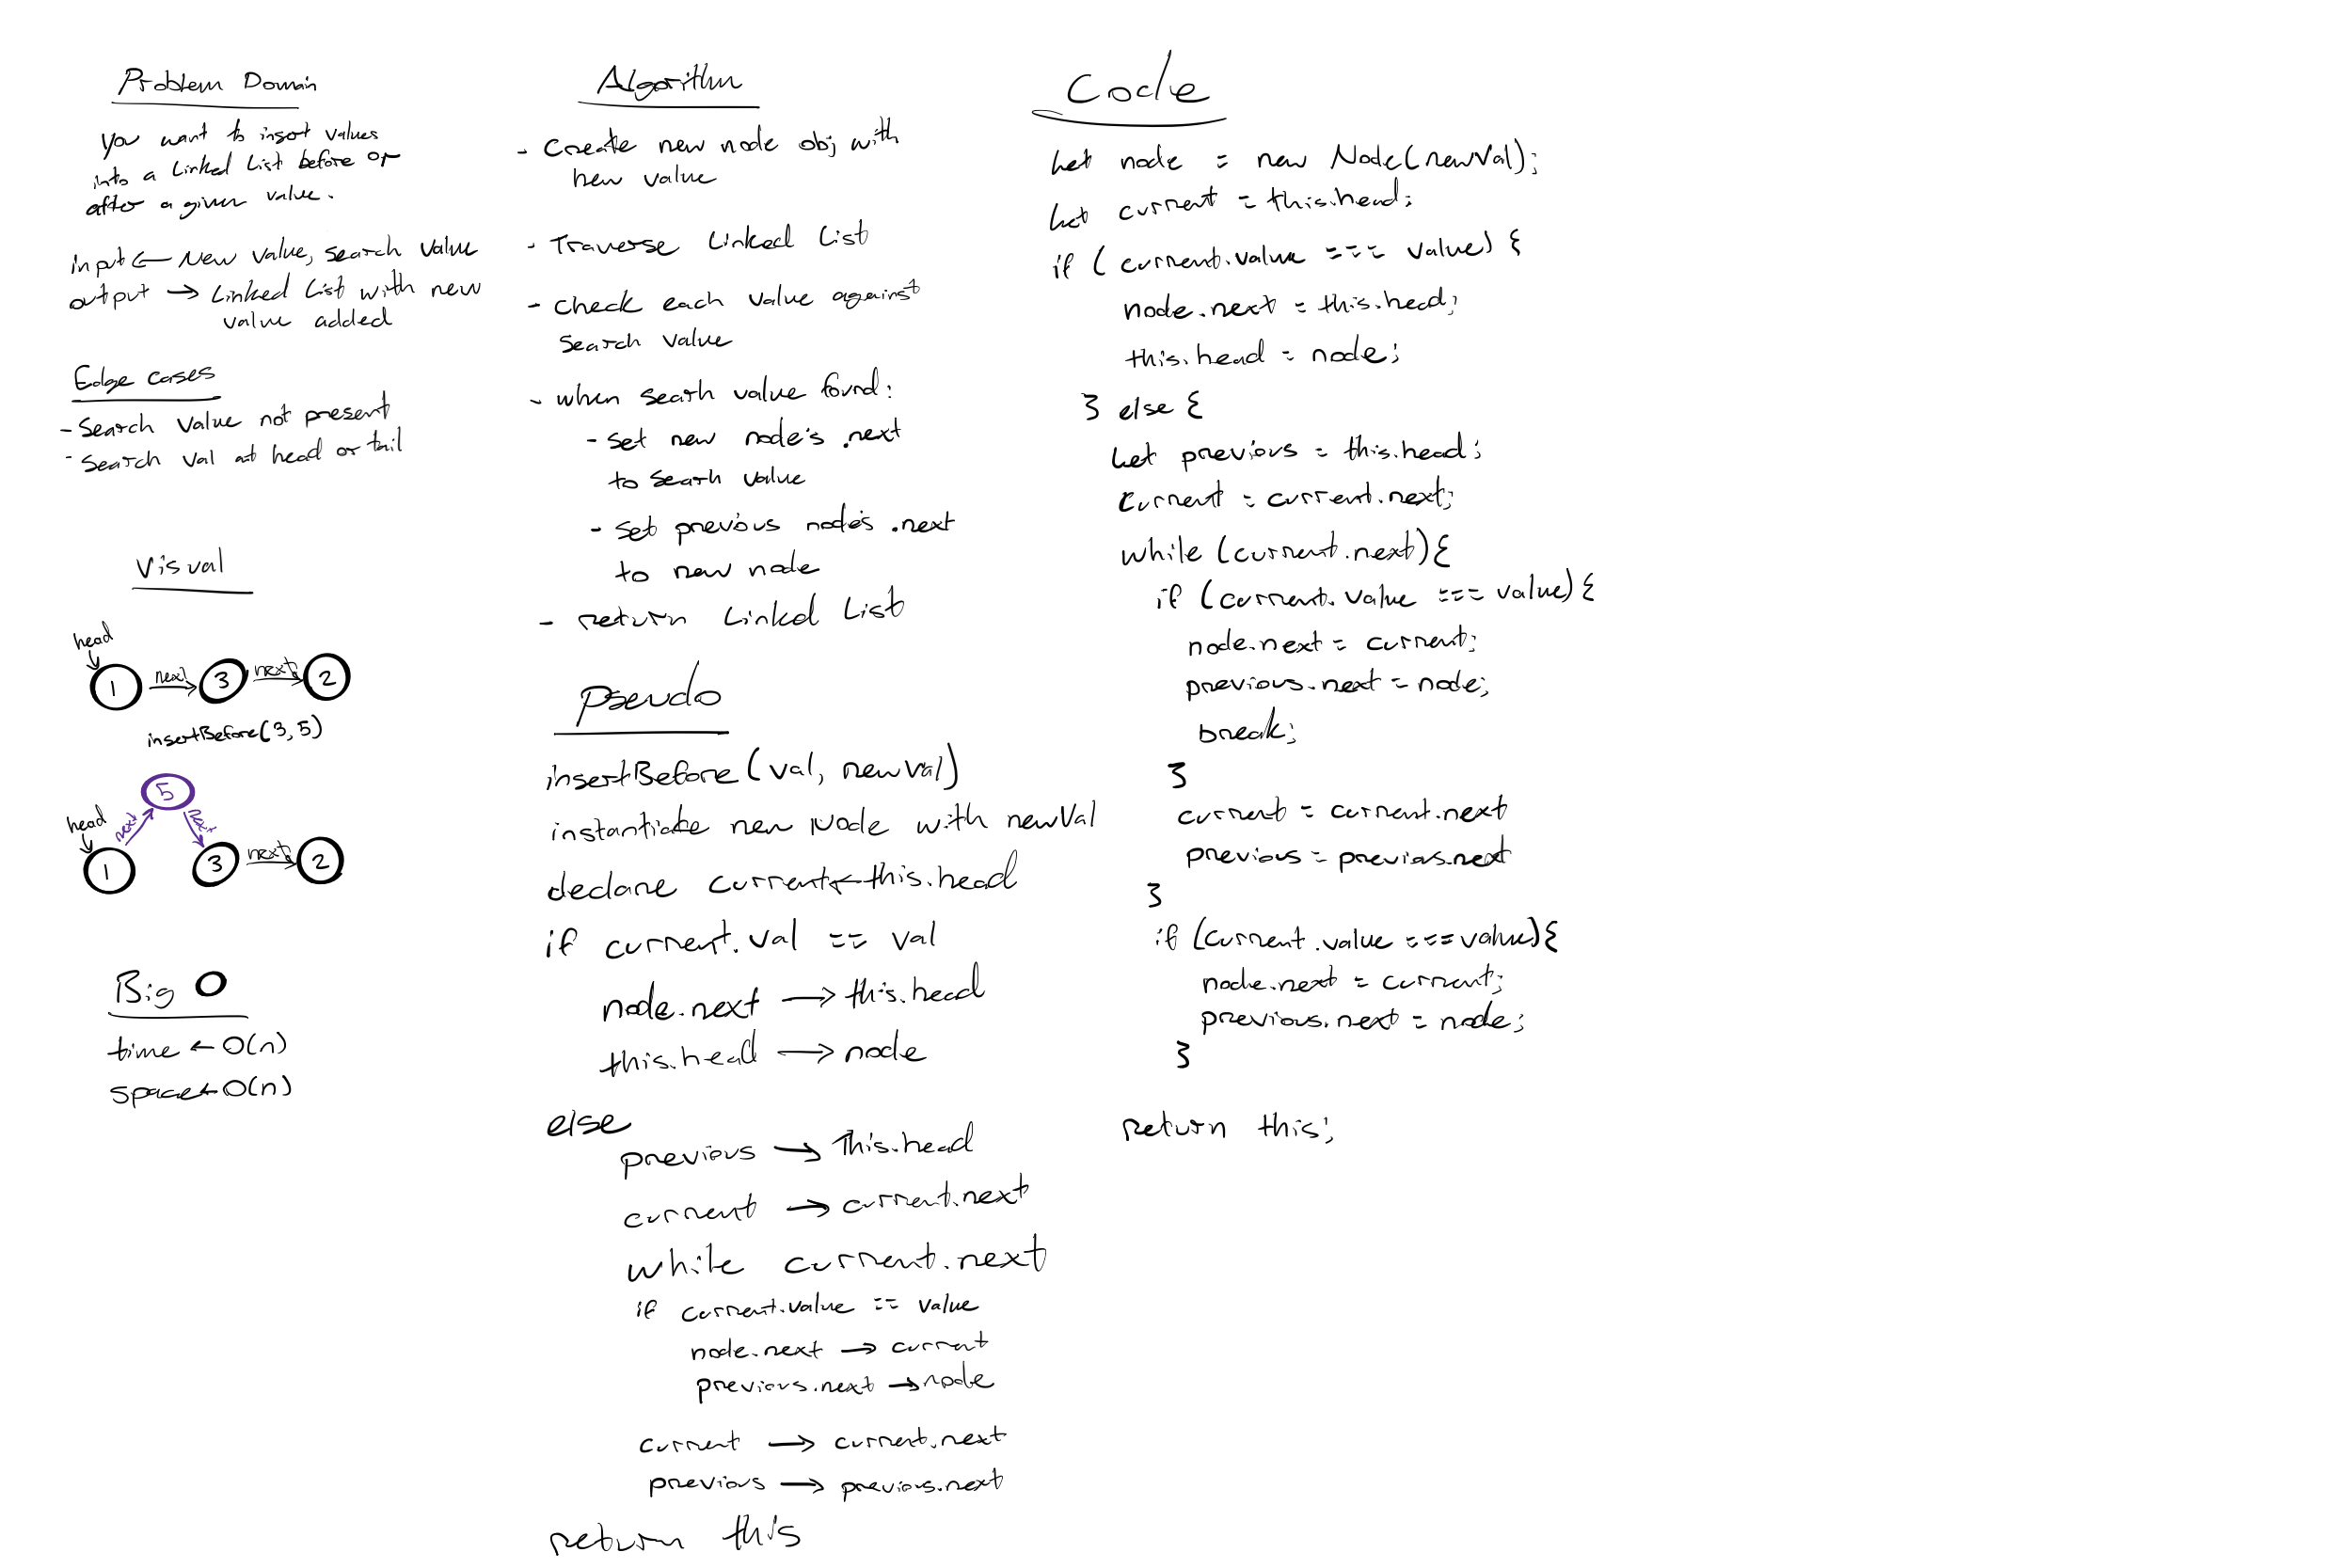 Problem Domain
You want to insert values
into a Linked List before or
after a given value.
input ← New value, search value
output → Linked List with new
value added
Edge cases
- Search value not present
- Search val at head or tail
Visual
head
1 next 3 next 2
insertBefore(3, 5)
5
head next next
1 3 next 2
Big O
time ← O(n)
space ← O(n)
Algorithm
- Create new node obj with
new value
- Traverse Linked List
- check each value against
search value
- when searh value found:
- set new node's .next
to searh value
- set previous node's .next
to new node
- return Linked List
Pseudo
insertBefore(val, newVal)
instantiate new Node with newVal
declare current ← this.head
if current.val == val
node.next → this.head
this.head → node
else
previous → This.head
current → current.next
while current.next
if current.value == value
node.next → current
previous.next → node
current → current.next
previous → previous.next
return this
Code
let node = new Node(newVal);
let current = this.head;
if (current.value === value) {
node.next = this.head;
this.head = node;
} else {
let previous = this.head;
current = current.next;
while (current.next){
if (current.value === value) {
node.next = current;
previous.next = node;
break;
}
current = current.next
previous = previous.next
}
if (current.value === value){
node.next = current;
previous.next = node;
}
return this;